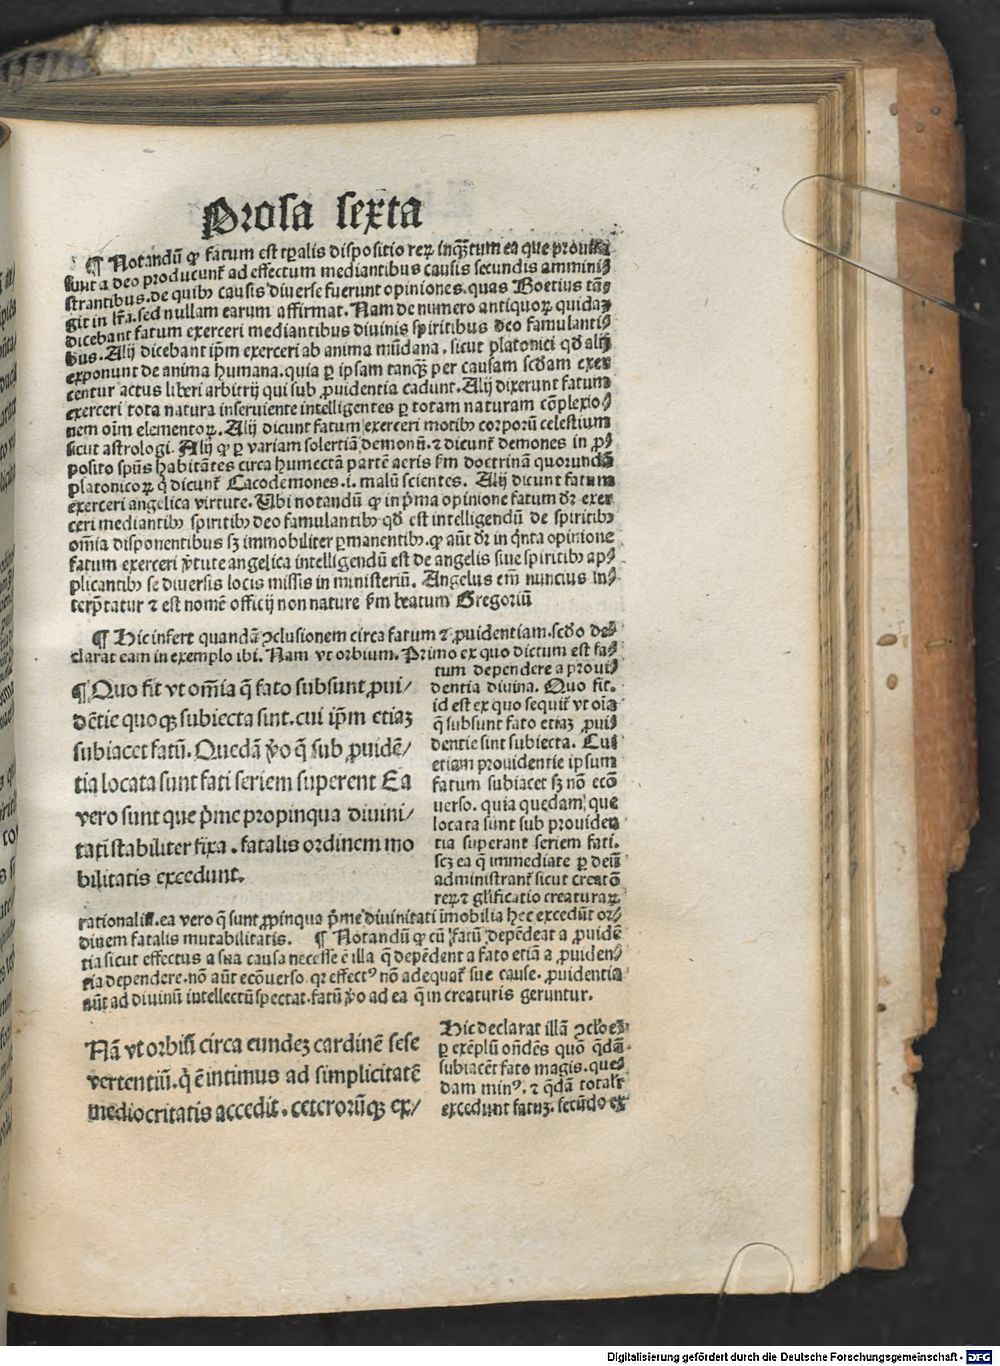 Prosa sexta
¶ Notandū ꝙ fatum est tꝑalis dispositio reꝝ inqꝫtum ea que prouisa
sunt a deo producunt᷑ ad effectum mediantibus causis secundis ammini⸗
strantibus. de quibꝫ causis diuerse fuerunt opiniones. quas Boetius tā⸗
git in lr̄a. sed nullam earum affirmat. Nam de numero antiquoꝝ quidaꝫ
dicebant fatum exerceri mediantibus diuinis spiritibus deo famulanti⸗
bus. Alij dicebant ip̄m exerceri ab anima mūdana. sicut platonici qd̄ alij
exponunt de anima humana. quia ꝑ ipsam tanqꝫ per causam scd̄am exer
centur actus liberi arbitrij qui sub ꝓuidentia cadunt. Alij dixerunt fatum
exerceri tota natura inseruiente intelligentes ꝑ totam naturam cōplexio⸗
nem oīm elementoꝝ. Alij dicunt fatum exerceri motibꝫ corporū celestium
sicut astrologi. Alij ꝙ ꝑ variam solertiā demonū. ⁊ dicunt demones in ꝓ⸗
posito spūs habitātes circa humectā partē aeris ẜm doctrinā quorundā
platonicoꝝ q̄ dicunt᷑ Cacodemones. i. malū scientes. Alij dicunt fatum
exerceri angelica virtute. Ubi notandū ꝙ in p̄ma opinione fatum dr̄ exer
ceri mediantibꝫ spiritibꝫ deo famulantibꝫ qd̄ est intelligendū de spiritibꝫ
om̄ia disponentibus sꝫ immobiliter ꝑmanentibꝫ. ꝙ aūt dr̄ in q̇nta opinione
fatum exerceri v̓tute angelica intelligendū est de angelis siue spiritibꝫ ap⸗
plicantibꝫ se diuersis locis missis in ministeriū. Angelus em̄ nuncius in⸗
terp̄tatur ⁊ est nomē officij non nature ẜm beatum Gregoriū
¶ Hic infert quandā ꝯclusionem circa fatum ⁊ ꝓuidentiam. scd̄o de⸗
clarat eam in exemplo ibi. Nam vt orbium. Primo ex quo dictum est fa⸗
tum dependere a proui⸗
dentia diuina. Quo fit.
id est ex quo sequit᷑ vt oīa
q̄ subsunt fato etiaꝫ ꝓui⸗
dentie sint subiecta. Cui
etiam prouidentie ipsum
fatum subiacet sꝫ nō ecō
uerso. quia quedam que
locata sunt sub prouiden
tia superant seriem fati.
scꝫ ea q̄ immediate ꝑ deū
administrant᷑ sicut creatō
reꝝ ⁊ gl̄ificatio creaturaꝝ
¶ Quo fit vt om̄ia q̄ fato subsunt ꝓui/
dētie quoqꝫ subiecta sint. cui ip̄m etiaꝫ
subiacet fatū. Quedā v̓o q̄ sub ꝓuidē/
tia locata sunt fati seriem superent Ea
vero sunt que p̄me propinqua diuini/
tati stabiliter fixa. fatalis ordinem mo
bilitatis excedunt.
rationaliū. ea vero q̄ sunt ꝓpinqua p̄me diuinitati imobilia hec excedūt or⸗
dinem fatalis mutabilitatis. ¶ Notandū ꝙ cū fatū depēdeat a ꝓuidē
tia sicut effectus a sua causa necesse ē illa q̄ depēdent a fato etiā a ꝓuiden⸗
tia dependere. nō aūt ecōuerso. qꝛ effectꝰ nō adequat᷑ sue cause. ꝓuidentia
aūt ad diuinū intellectū spectat. fatū v̓o ad ea q̄ in creaturis geruntur.
Nā vt orbiū circa eundeꝫ cardinē sese
vertentiū. q̇ ē intimus ad simplicitatē
mediocritatis accedit. ceterorūqꝫ ex/
Hic declarat illā ꝯclōeꝫ
ꝑ exēplū ondēs quō q̄dā
subiacēt fato magis. que⸗
dam minꝰ. ⁊ q̄dā totalr̄
excedunt fatuꝫ. secūdo ex
Digitalisierung gefördert durch die Deutsche Forschungsgemeinschaft - DFG